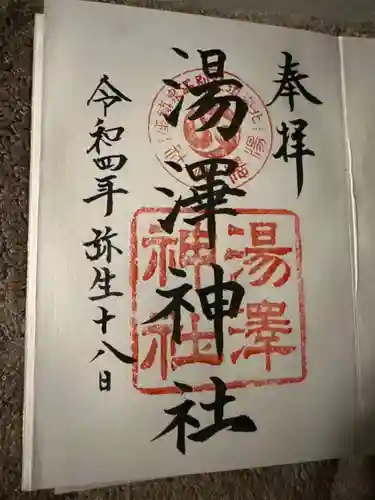 奉拝
湯澤神社
令和四年弥生十八日
湯澤
神社